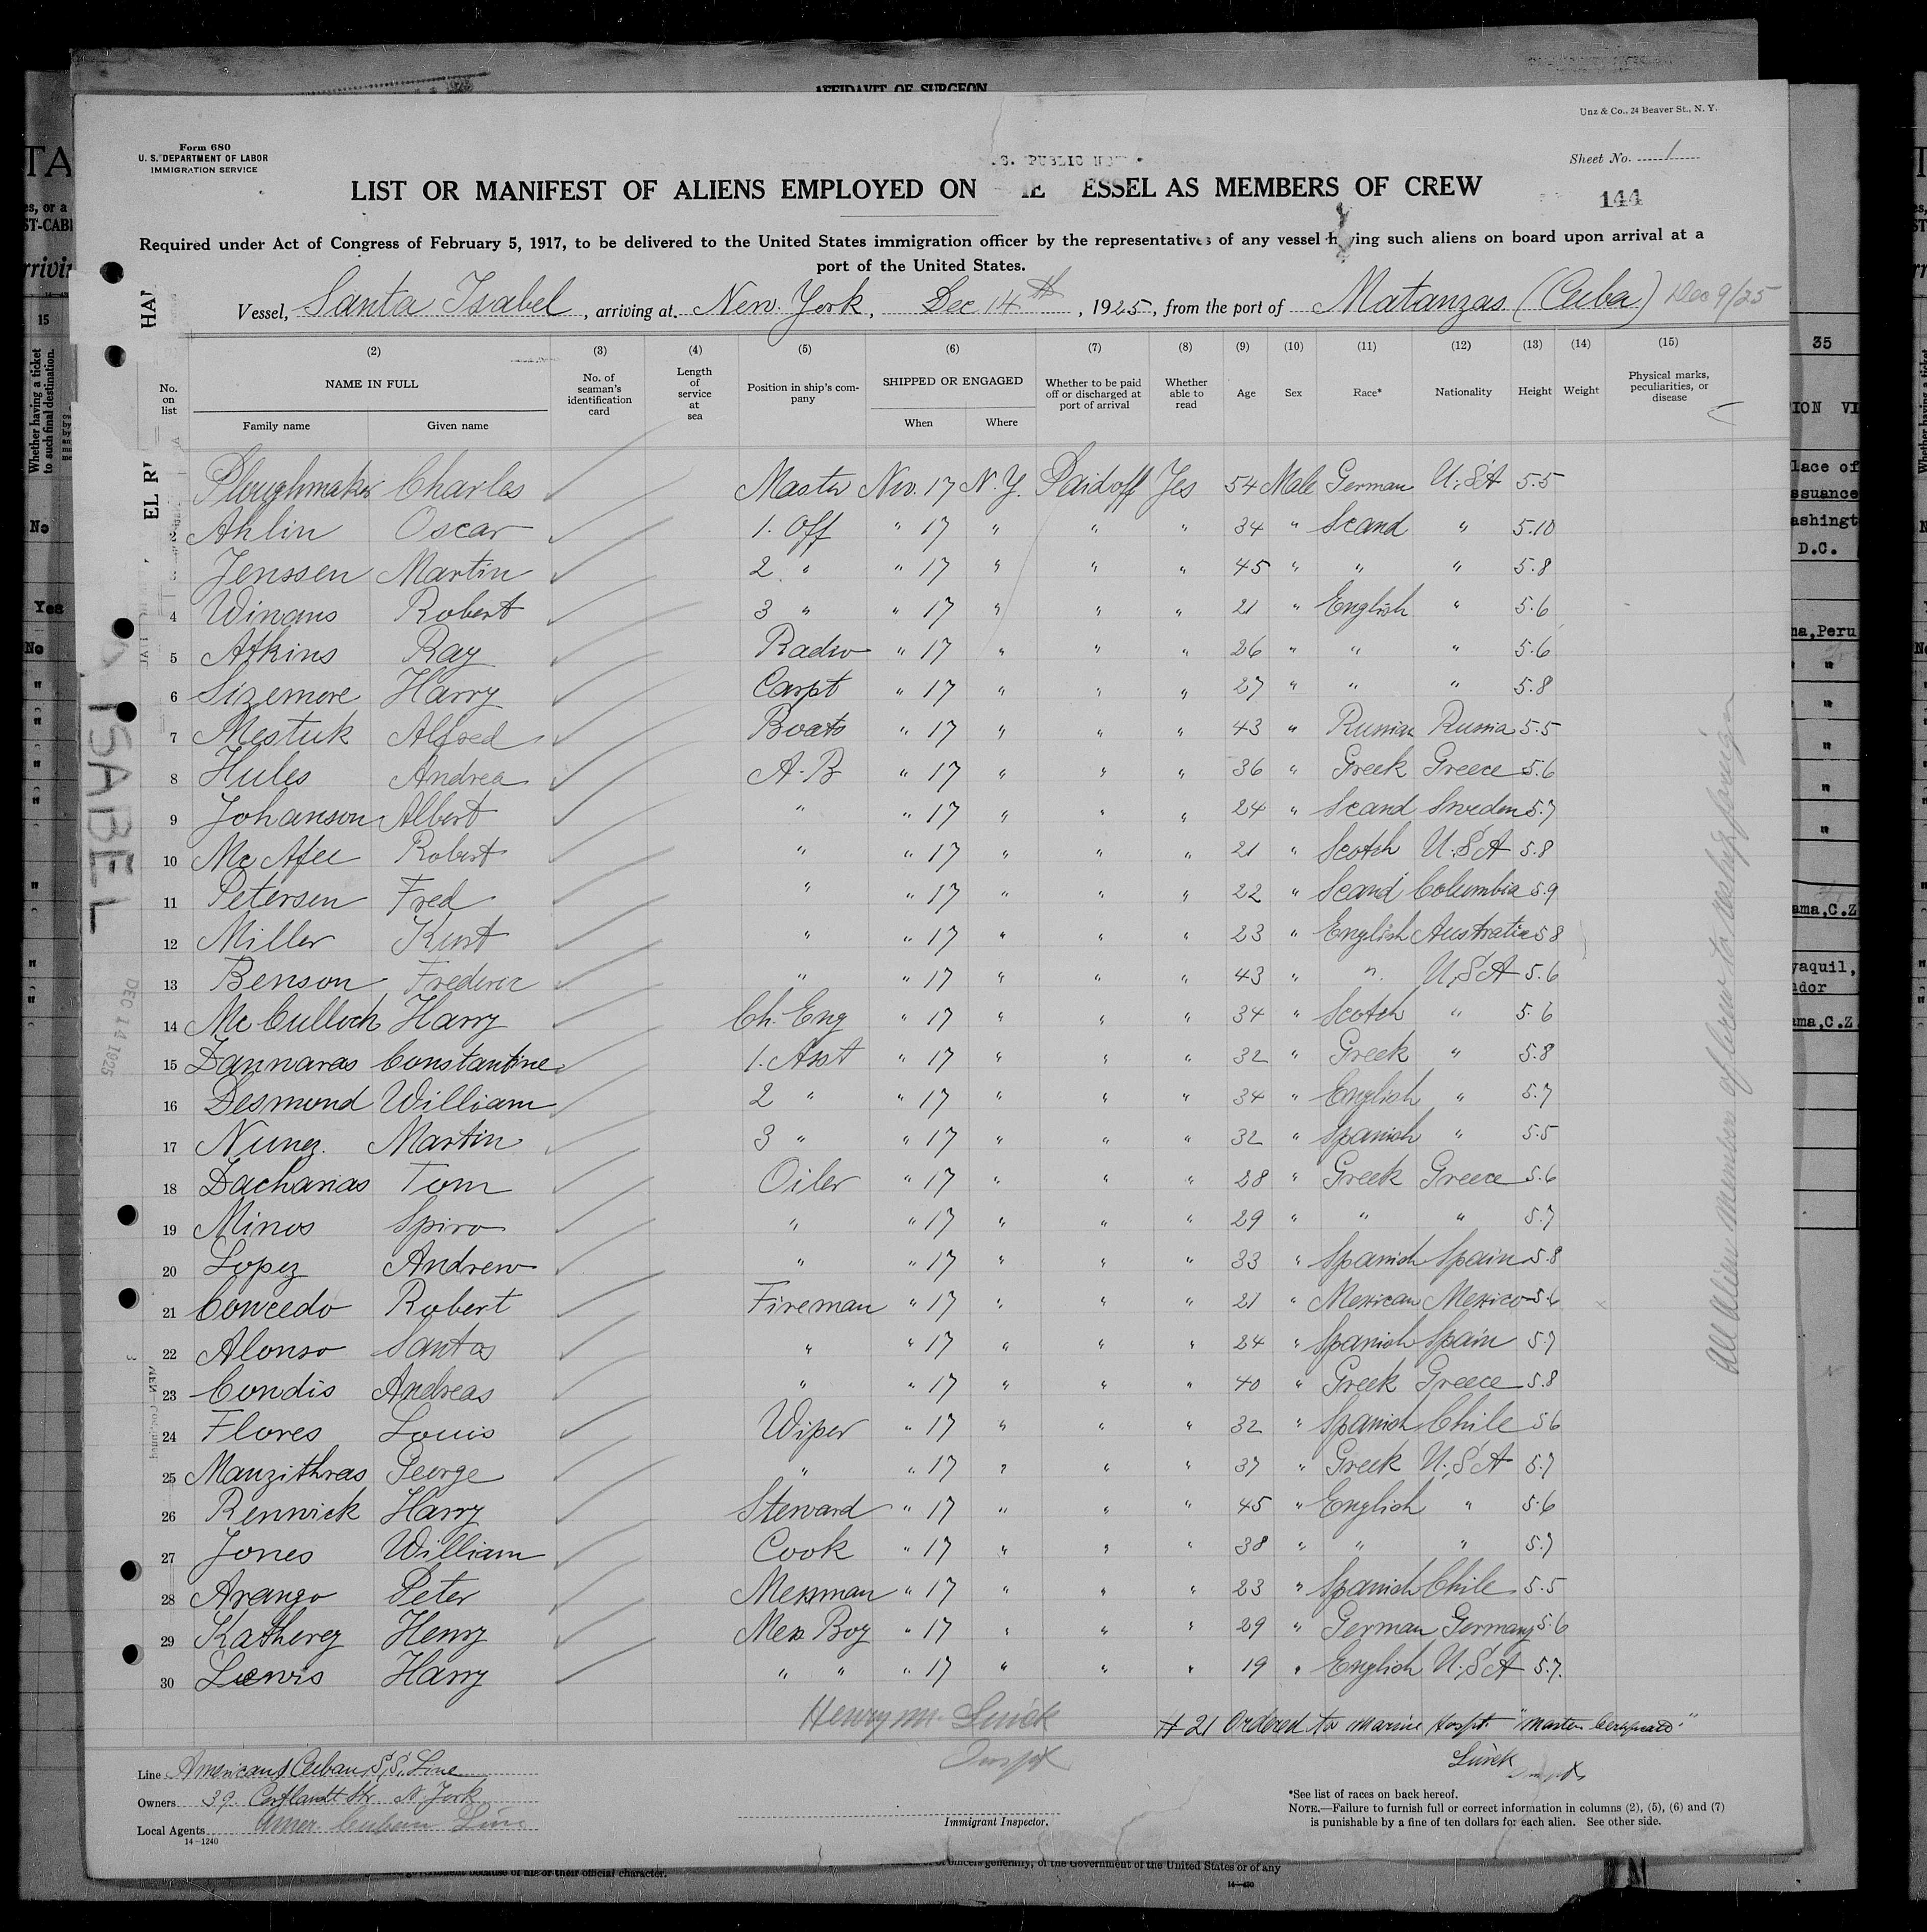 AFFIDAVIT OF SURGEON
Unz & Co., 24 Beaver St., N. Y.
Form 680
U. S. DEPARTMENT OF LABOR
IMMIGRATION SERVICE
Sheet No. 1
144
LIST OR MANIFEST OF ALIENS EMPLOYED ON ESSEL AS MEMBERS OF CREW
Required under Act of Congress of February 5, 1917, to be delivered to the United States immigration officer by the representatives of any vessel having such aliens on board upon arrival at a
port of the United States.
Vessel, Santa Isabel, arriving at New York, Dec 14th, 1925, from the port of Matanzas (Cuba) Dec 9/25
(2) (3) (4) (5) (6) (7) (8) (9) (10) (11) (12) (13) (14) (15)
No. on list NAME IN FULL No. of seaman's identification card Length of service at sea Position in ship's company SHIPPED OR ENGAGED Whether to be paid off or discharged at port of arrival Whether able to read Age Sex Race* Nationality Height Weight Physical marks, peculiarities, or disease
Family name Given name When Where
Ploughmaker Charles Master Nov. 17 N.Y. Paid off Yes 54 Male German U.S.A 5.5
2 Ahlin Oscar 1. Off " 17 " " " 34 " Scand " 5.10
3 Jenssen Martin 2 " " 17 " " " 45 " " " 5.8
4 Winans Robert 3 " " 17 " " " 21 " English " 5.6
5 Atkins Ray Radio " 17 " " " 26 " " " 5.6
6 Sizemore Harry Carpt " 17 " " " 27 " " " 5.8
7 Mestuk Alfred Boats " 17 " " " 43 " Russian Russia 5.5
8 Hules Andrea A.B " 17 " " " 36 " Greek Greece 5.6
9 Johanson Albert " " 17 " " " 24 " Scand Sweden 5.7
10 Mc Afee Robert " " 17 " " " 21 " Scotch U.S.A 5.8
11 Petersen Fred " " 17 " " " 22 " Scand Columbia 5.9
12 Miller Kurt " " 17 " " " 23 " English Australia 5.8
13 Benson Frederic " " 17 " " " 43 " " U.S.A 5.6
14 Mc Culloch Harry Ch. Eng " 17 " " " 34 " Scotch " 5.6
15 Zannaras Constantine 1. Asst " 17 " " " 32 " Greek " 5.8
16 Desmond William 2 " " 17 " " " 34 " English " 5.7
17 Nunez Martin 3 " " 17 " " " 32 " Spanish " 5.5
18 Zacharias Tom Oiler " 17 " " " 28 " Greek Greece 5.6
19 Minos Spiro " " 17 " " " 29 " " " 5.7
20 Lopez Andrew " " 17 " " " 33 " Spanish Spain 5.8
21 Concedo Robert Fireman " 17 " " " 21 " Mexican Mexico 5.6
22 Alonso Santos " " 17 " " " 24 " Spanish Spain 5.7
23 Condis Andreas " " 17 " " " 40 " Greek Greece 5.8
24 Flores Louis Wiper " 17 " " " 32 " Spanish Chile 5.6
25 Manzithras George " " 17 " " " 37 " Greek U.S.A 5.7
26 Rennick Harry Steward " 17 " " " 45 " English " 5.6
27 Jones William Cook " 17 " " " 38 " " " 5.7
28 Arango Peter Messman " 17 " " " 23 " Spanish Chile 5.5
29 Katherez Henry Mess Boy " 17 " " " 29 " German Germany 5.6
30 Lewis Harry " " " 17 " " " 19 " English U.S.A 5.7.
Henry M. Linick
Inspt
# 21 ordered to marine Hospt.
Line American & Cuban S.S. Line
Owners 39 Cortlandt Str. N. York
Local Agents Amer Cuban Line
14-1240
Immigrant Inspector.
*See list of races on back hereof.
NOTE.—Failure to furnish full or correct information in columns (2), (5), (6) and (7)
is punishable by a fine of ten dollars for each alien. See other side.
ISABEL
DEC 14 1925
government because of his or their official character.
of officers generally, of the Government of the United States or of any
15
Whether having a ticket to such final destination.
No
Yes
No
35
D.C.